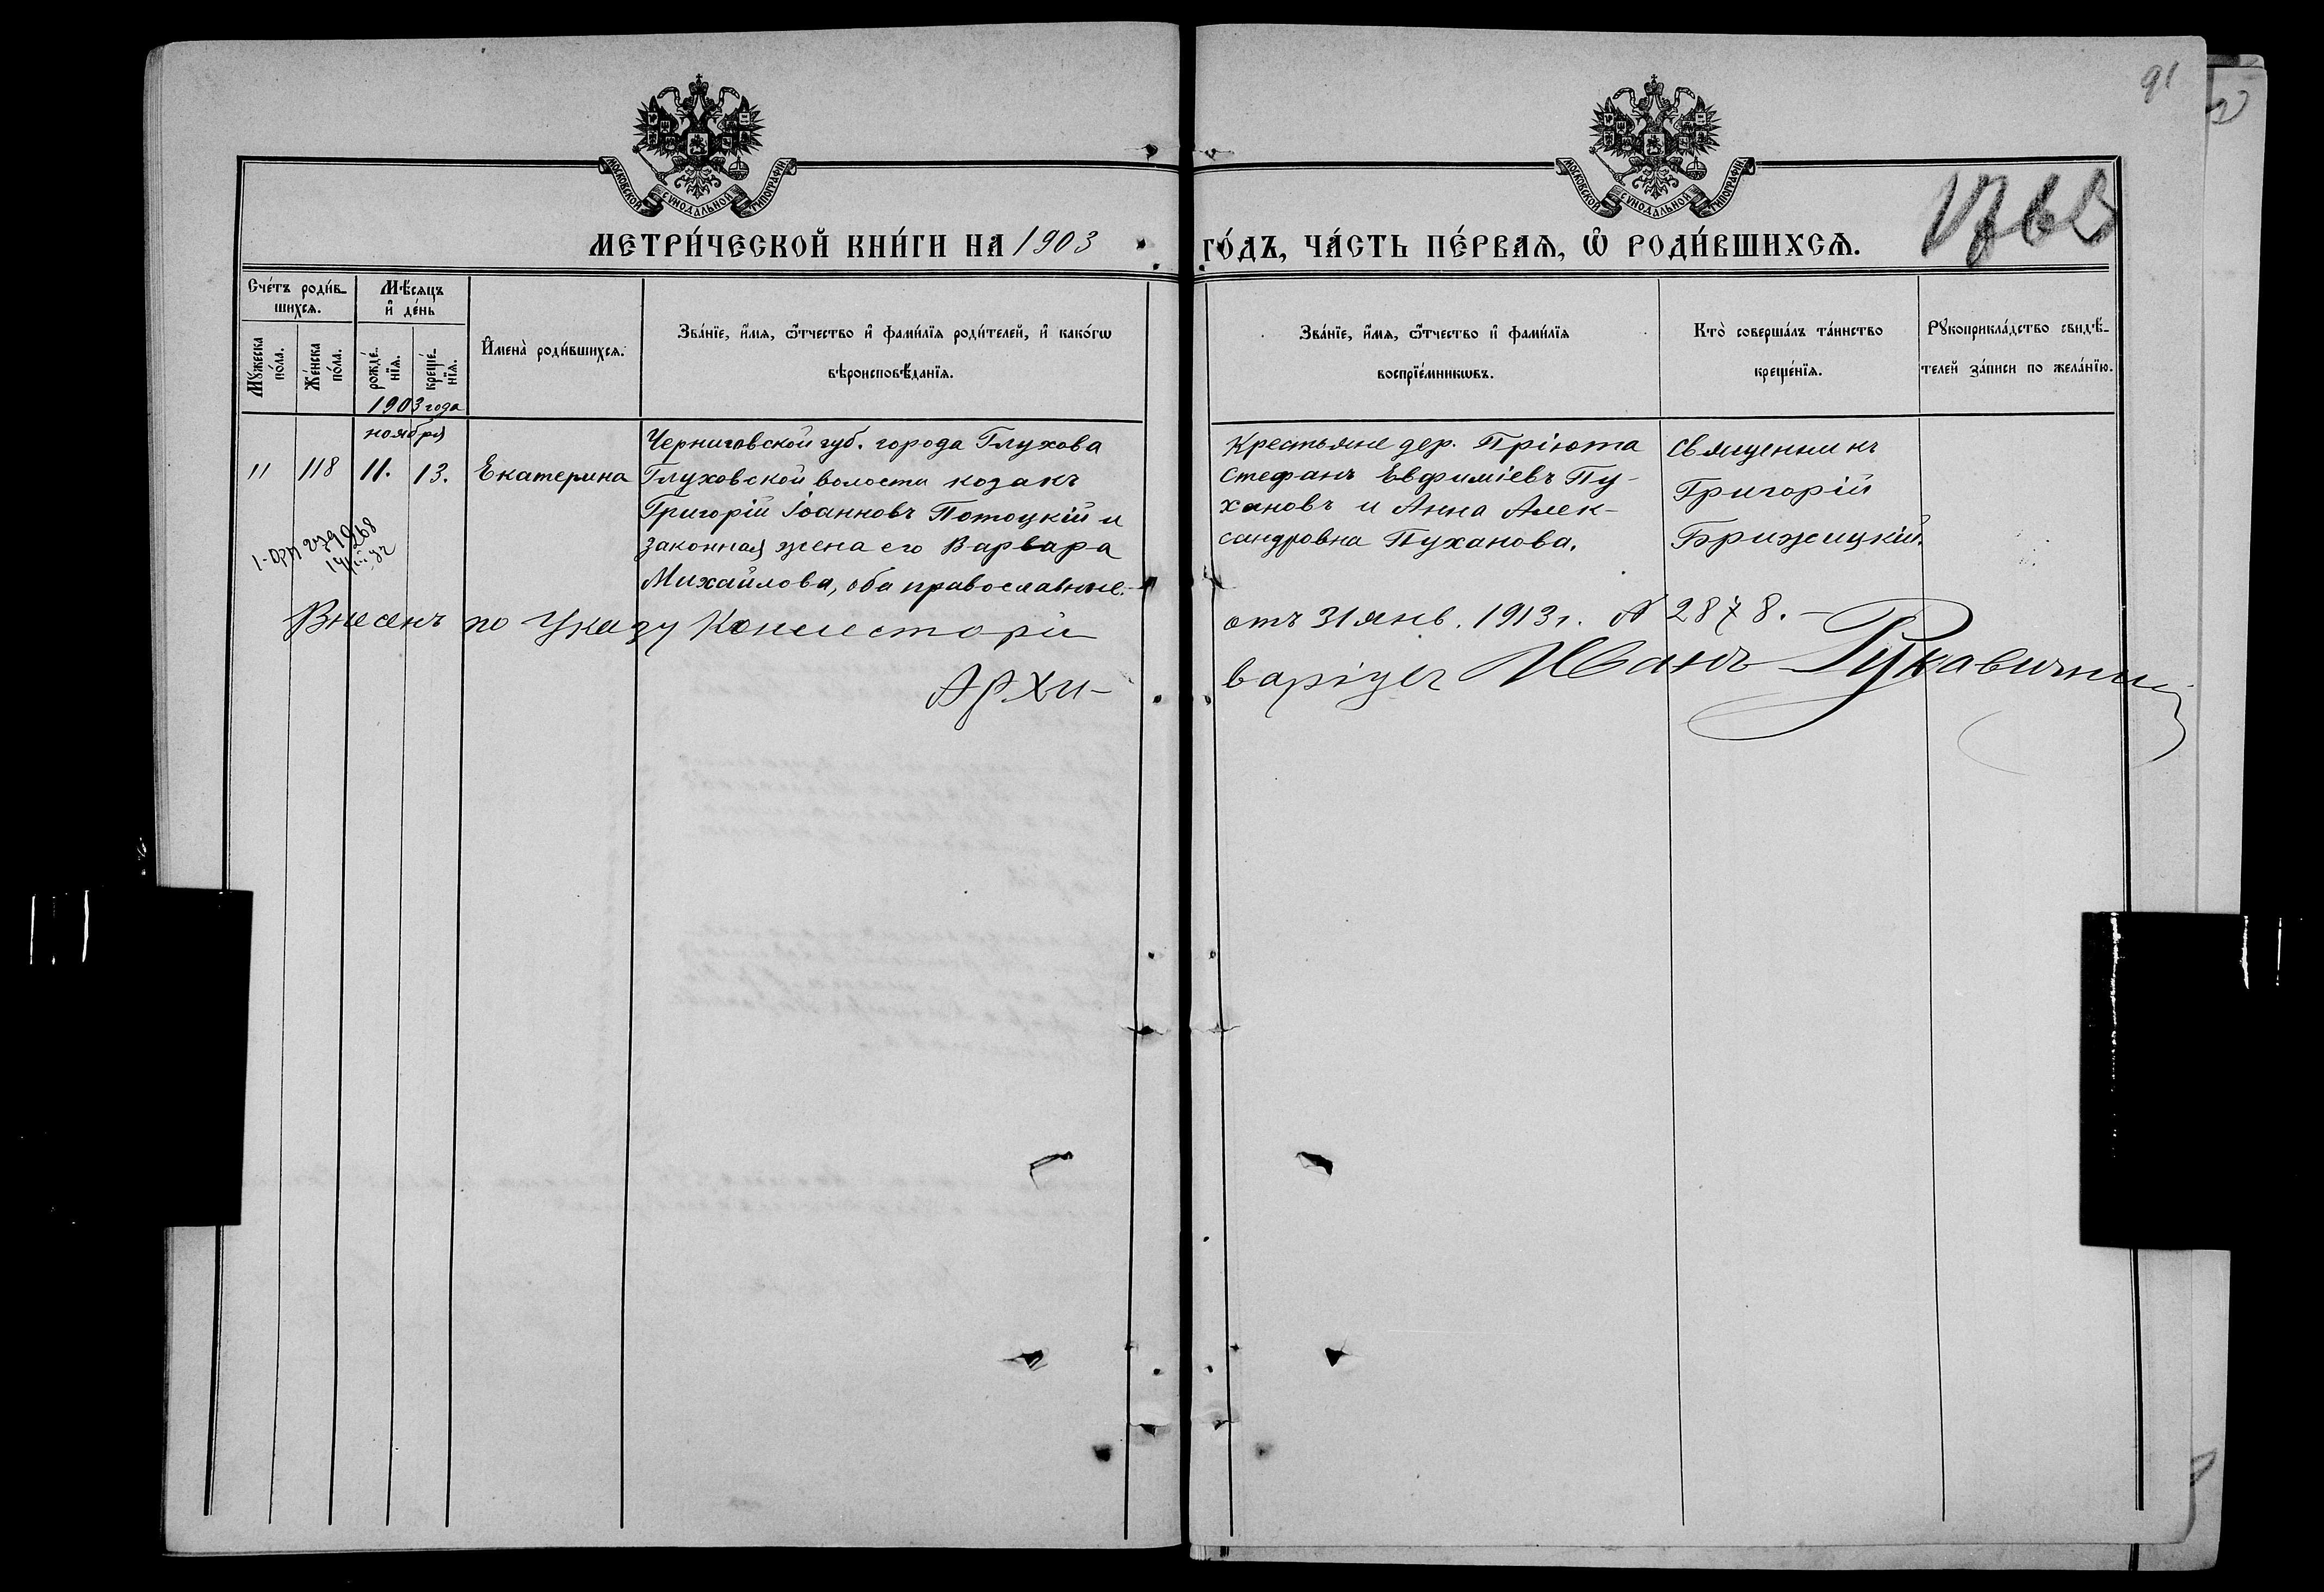 91
МОСКОВСКОЙ СѴНОДАЛЬНОЙ ТИПОГРАФІИ
МОСКОВСКОЙ СѴНОДАЛЬНОЙ ТИПОГРАФІИ
МЕТРИ́ЧЕСКОЙ КНИ́ГИ НА 1903 ГО́ДЪ, ЧА́СТЬ ПЕ́РВАѦ, Ѽ РОДИ́ВШИХСѦ.
Сче́тъ роди́в-
шихсѧ.
Мꙋ́жеска
по́ла.
Же́нска
по́ла.
Мѣ́сѧцъ
и҆ де́нь
рожде́-
нїѧ.
креще́-
нїѧ.
1903 года
И҆мена̀ роди́вшихсѧ.
Зва́нїе, и҆́мѧ, ѻ҆́тчество и҆ фами́лїѧ роди́телей, и҆ како́гѡ
вѣроисповѣ́данїѧ.
Зва́нїе, и҆́мѧ, ѻ҆́тчество и҆ фами́лїѧ
воспрїе́мникѡвъ.
Кто̀ соверша́лъ та́инство
креще́нїѧ.
Рꙋкоприкла́дство свидѣ́-
телей за́писи по жела́нїю.
ноября
11 118 11. 13. Екатерина
Черниговской губ. города Глухова
Глуховской волости козакъ
Григорій Іоанновъ Потоцкій и
законная жена его Варвара
Михайлова, оба православные.
Крестьяне дер. Пріюта
Стефанъ Евфиміевъ Пу-
хановъ и Анна Алек-
сандровна Пуханова.
Священникъ
Григорій
Брижицкій.
Внесенъ по Указу Консисторіи отъ 31 янв. 1913 г. № 2878.
Архи-варіусъ Иванъ Рукавичн